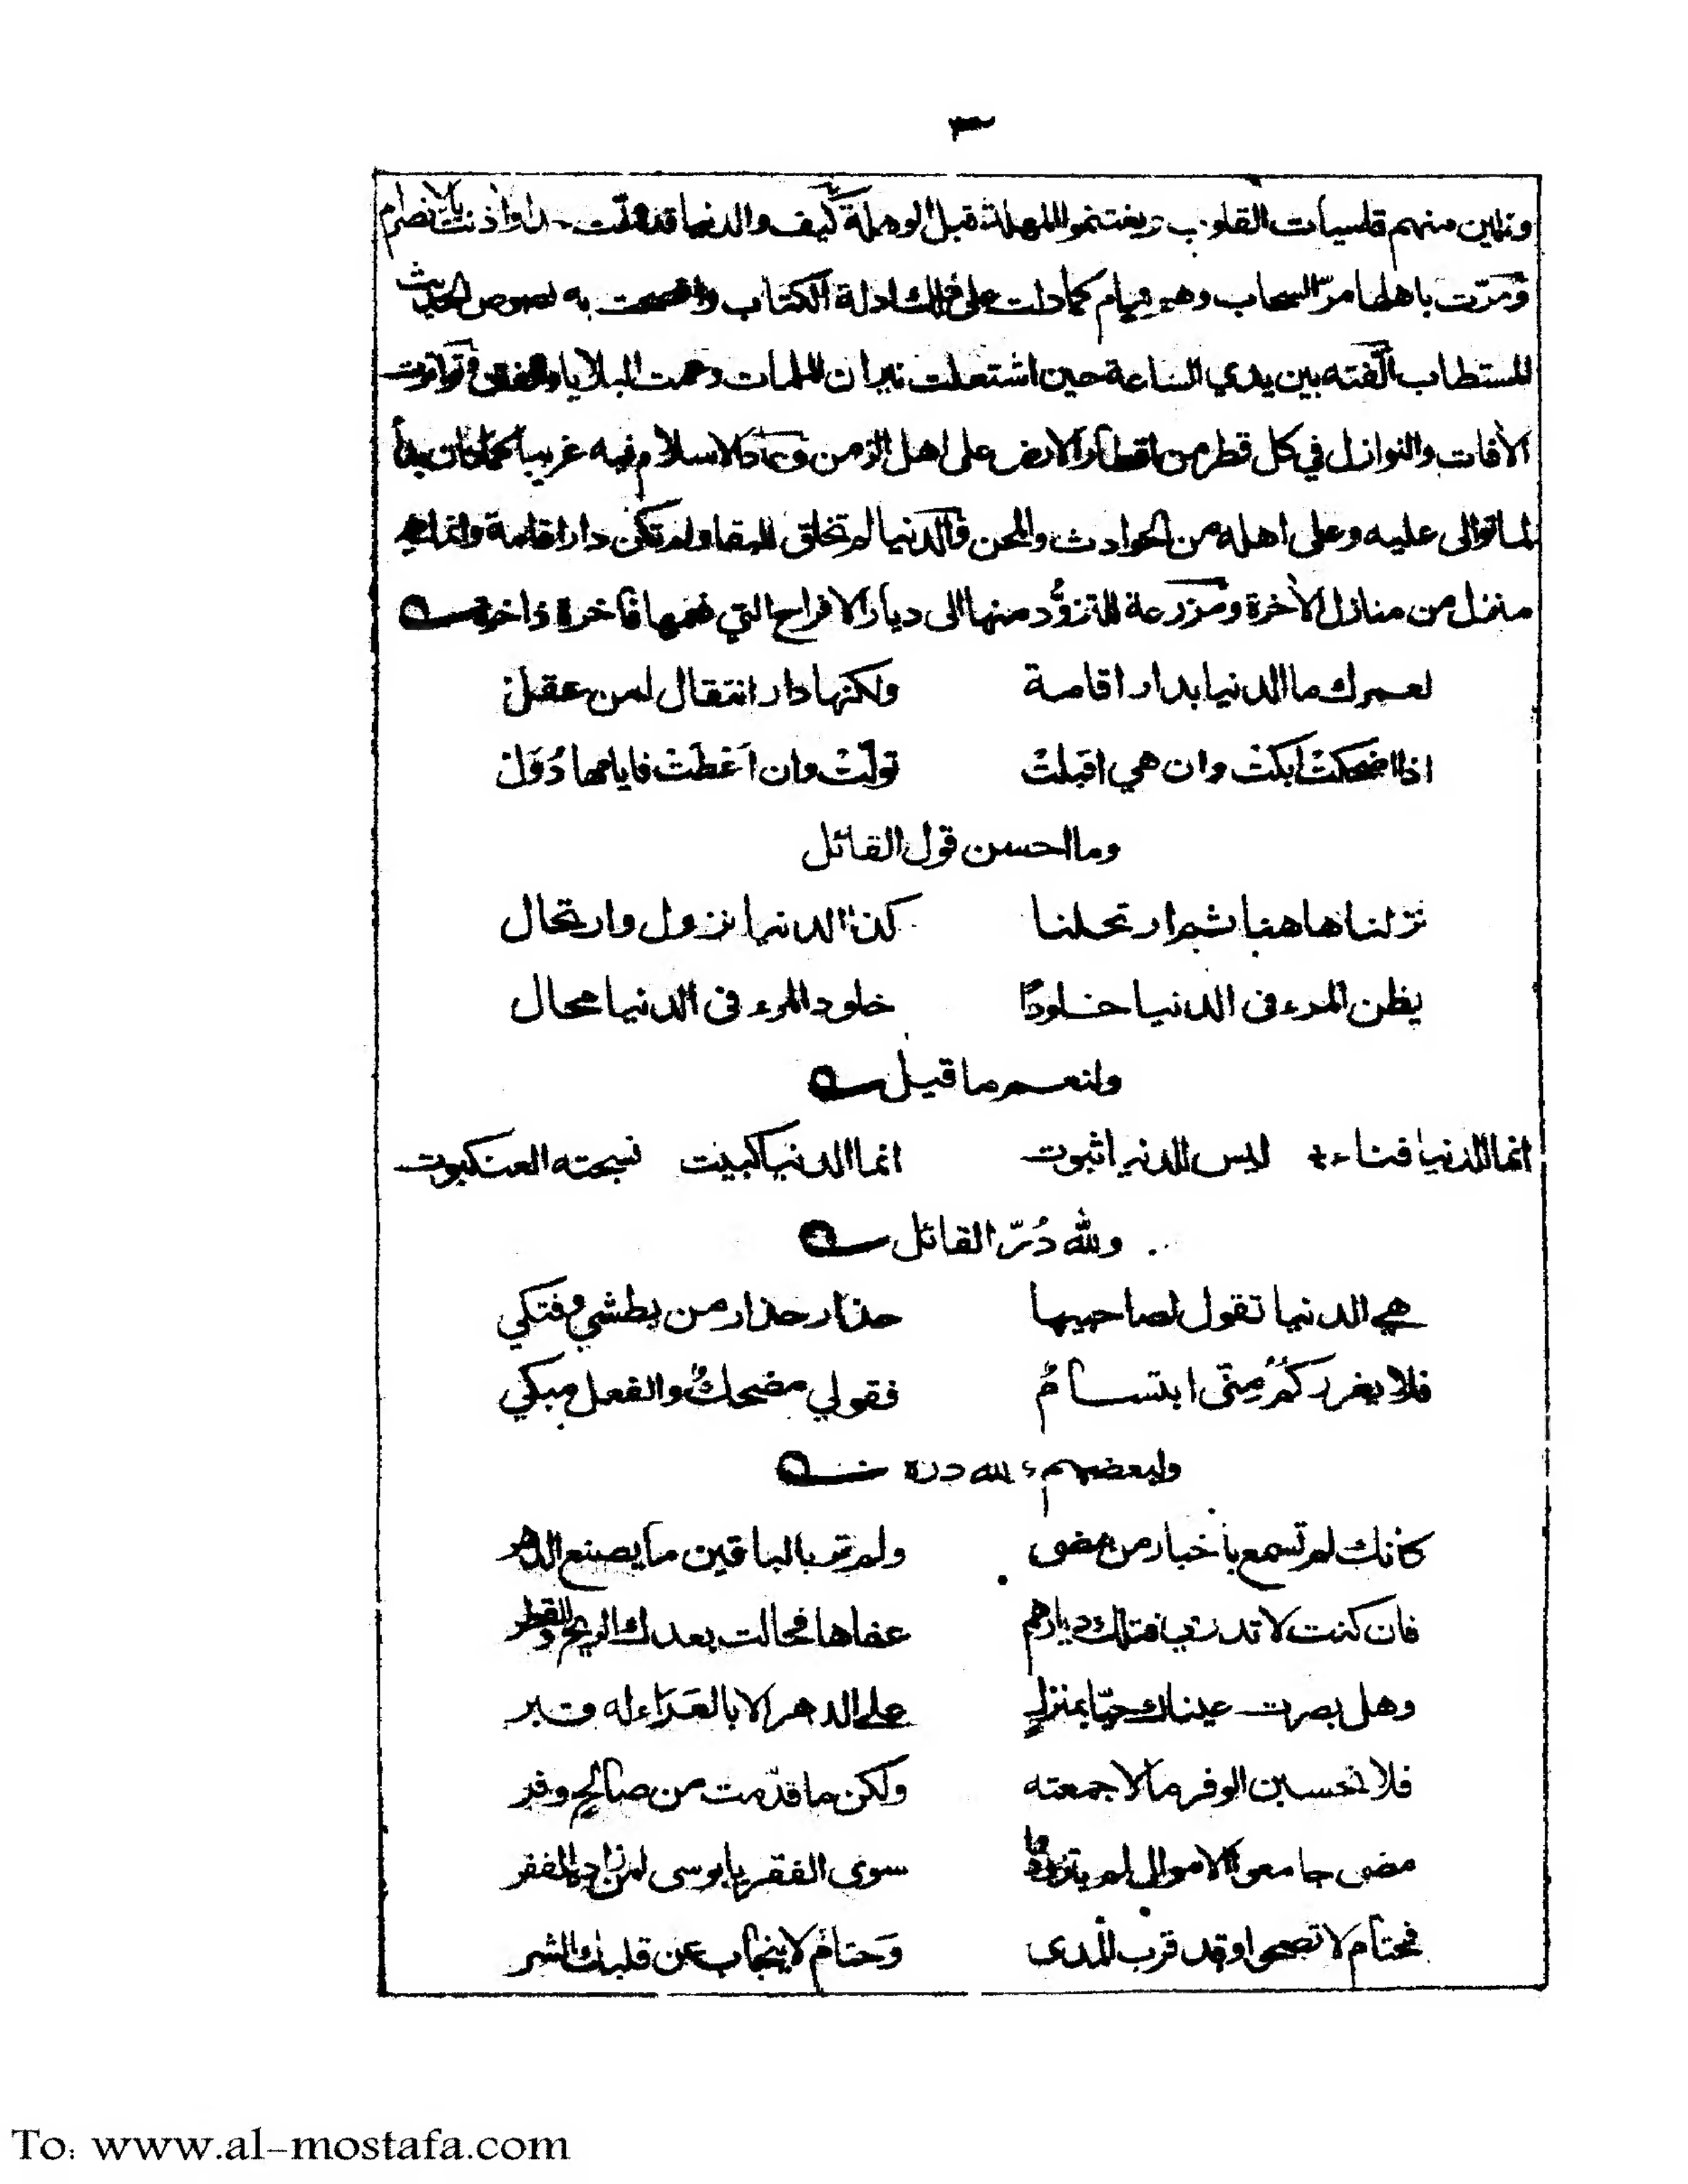 ٣
وتلين منهم قاسيات القلوب ويغتنموا المهلة قبل الوهلة كيف والدنيا قد ولّت حذاء واذنت بالانصرام
ومرّت باهلها مرّ السحاب وهم نيام كما دلت على ذلك ادلة الكتاب وافصحت به نصوص الحديث
المستطاب الّفته بين يدي الساعة حين اشتعلت نيران الملمات وعمت البلايا والفتن وتواترت
الأفات والنوازل في كل قطر من اقطار الارض على اهل الزمن وعاد الاسلام فيه غريبا كما كان بدأ
لما توالى عليه وعلى اهله من الحوادث والمحن فالدنيا لم تخلق للبقا ولم تكن دار اقامة وانما هي
منزل من منازل الأخرة ومزرعة للتزوُّد منها الى ديار الافراح التي نعمها فاخرة ذاخرة
لعمرك ما الدنيا بدار اقامة ولكنها دار انتقال لمن عقلْ
اذا اضحكتْ ابكتْ وان هي اقبلتْ تولّتْ وان اَعْطَتْ فايامها دُوَلْ
وما احسن قول القائل
نزلنا هاهنا ثم ارتحلنا كذا الدنيا نزول وارتحال
يظن المرء فى الدنيا خلودًا خلود المرء فى الدنيا محال
ولنعم ما قيل
انما الدنيا فناء ليس للدنيا ثبوت انما الدنيا كبيت نسجته العنكبوت
ولله دُرّ القائل
هي الدنيا تقول لصاحبيها حذار حذار من بطشي وفتكي
فلا يغرركمُ مِنّى ابتسامٌ فقولي مضحكٌ والفعل مبكي
ولبعضهم لله دره
كانك لم تسمع باخبار من مضى ولم تر بالباقين ما يصنع الدهر
فان كنت لا تدري فتلك ديارهم عفاها محالت بعدك الريح والقطر
وهل بصرت عيناك حيّا بمنزلٍ على الدهر الا بالعَرَاء له قبر
فلا تحسبن الوفر مالا جمعته ولكن ما قدّمت من صالحٍ وفر
مضى جامعو الاموال لم يتزودوا سوى الفقر يا بوسى لمن زاده الفقر
فحتام لا تصحو وقد قرب المدى وَحتامَ لا ينجاب عن قلبك السكر
To: www.al-mostafa.com